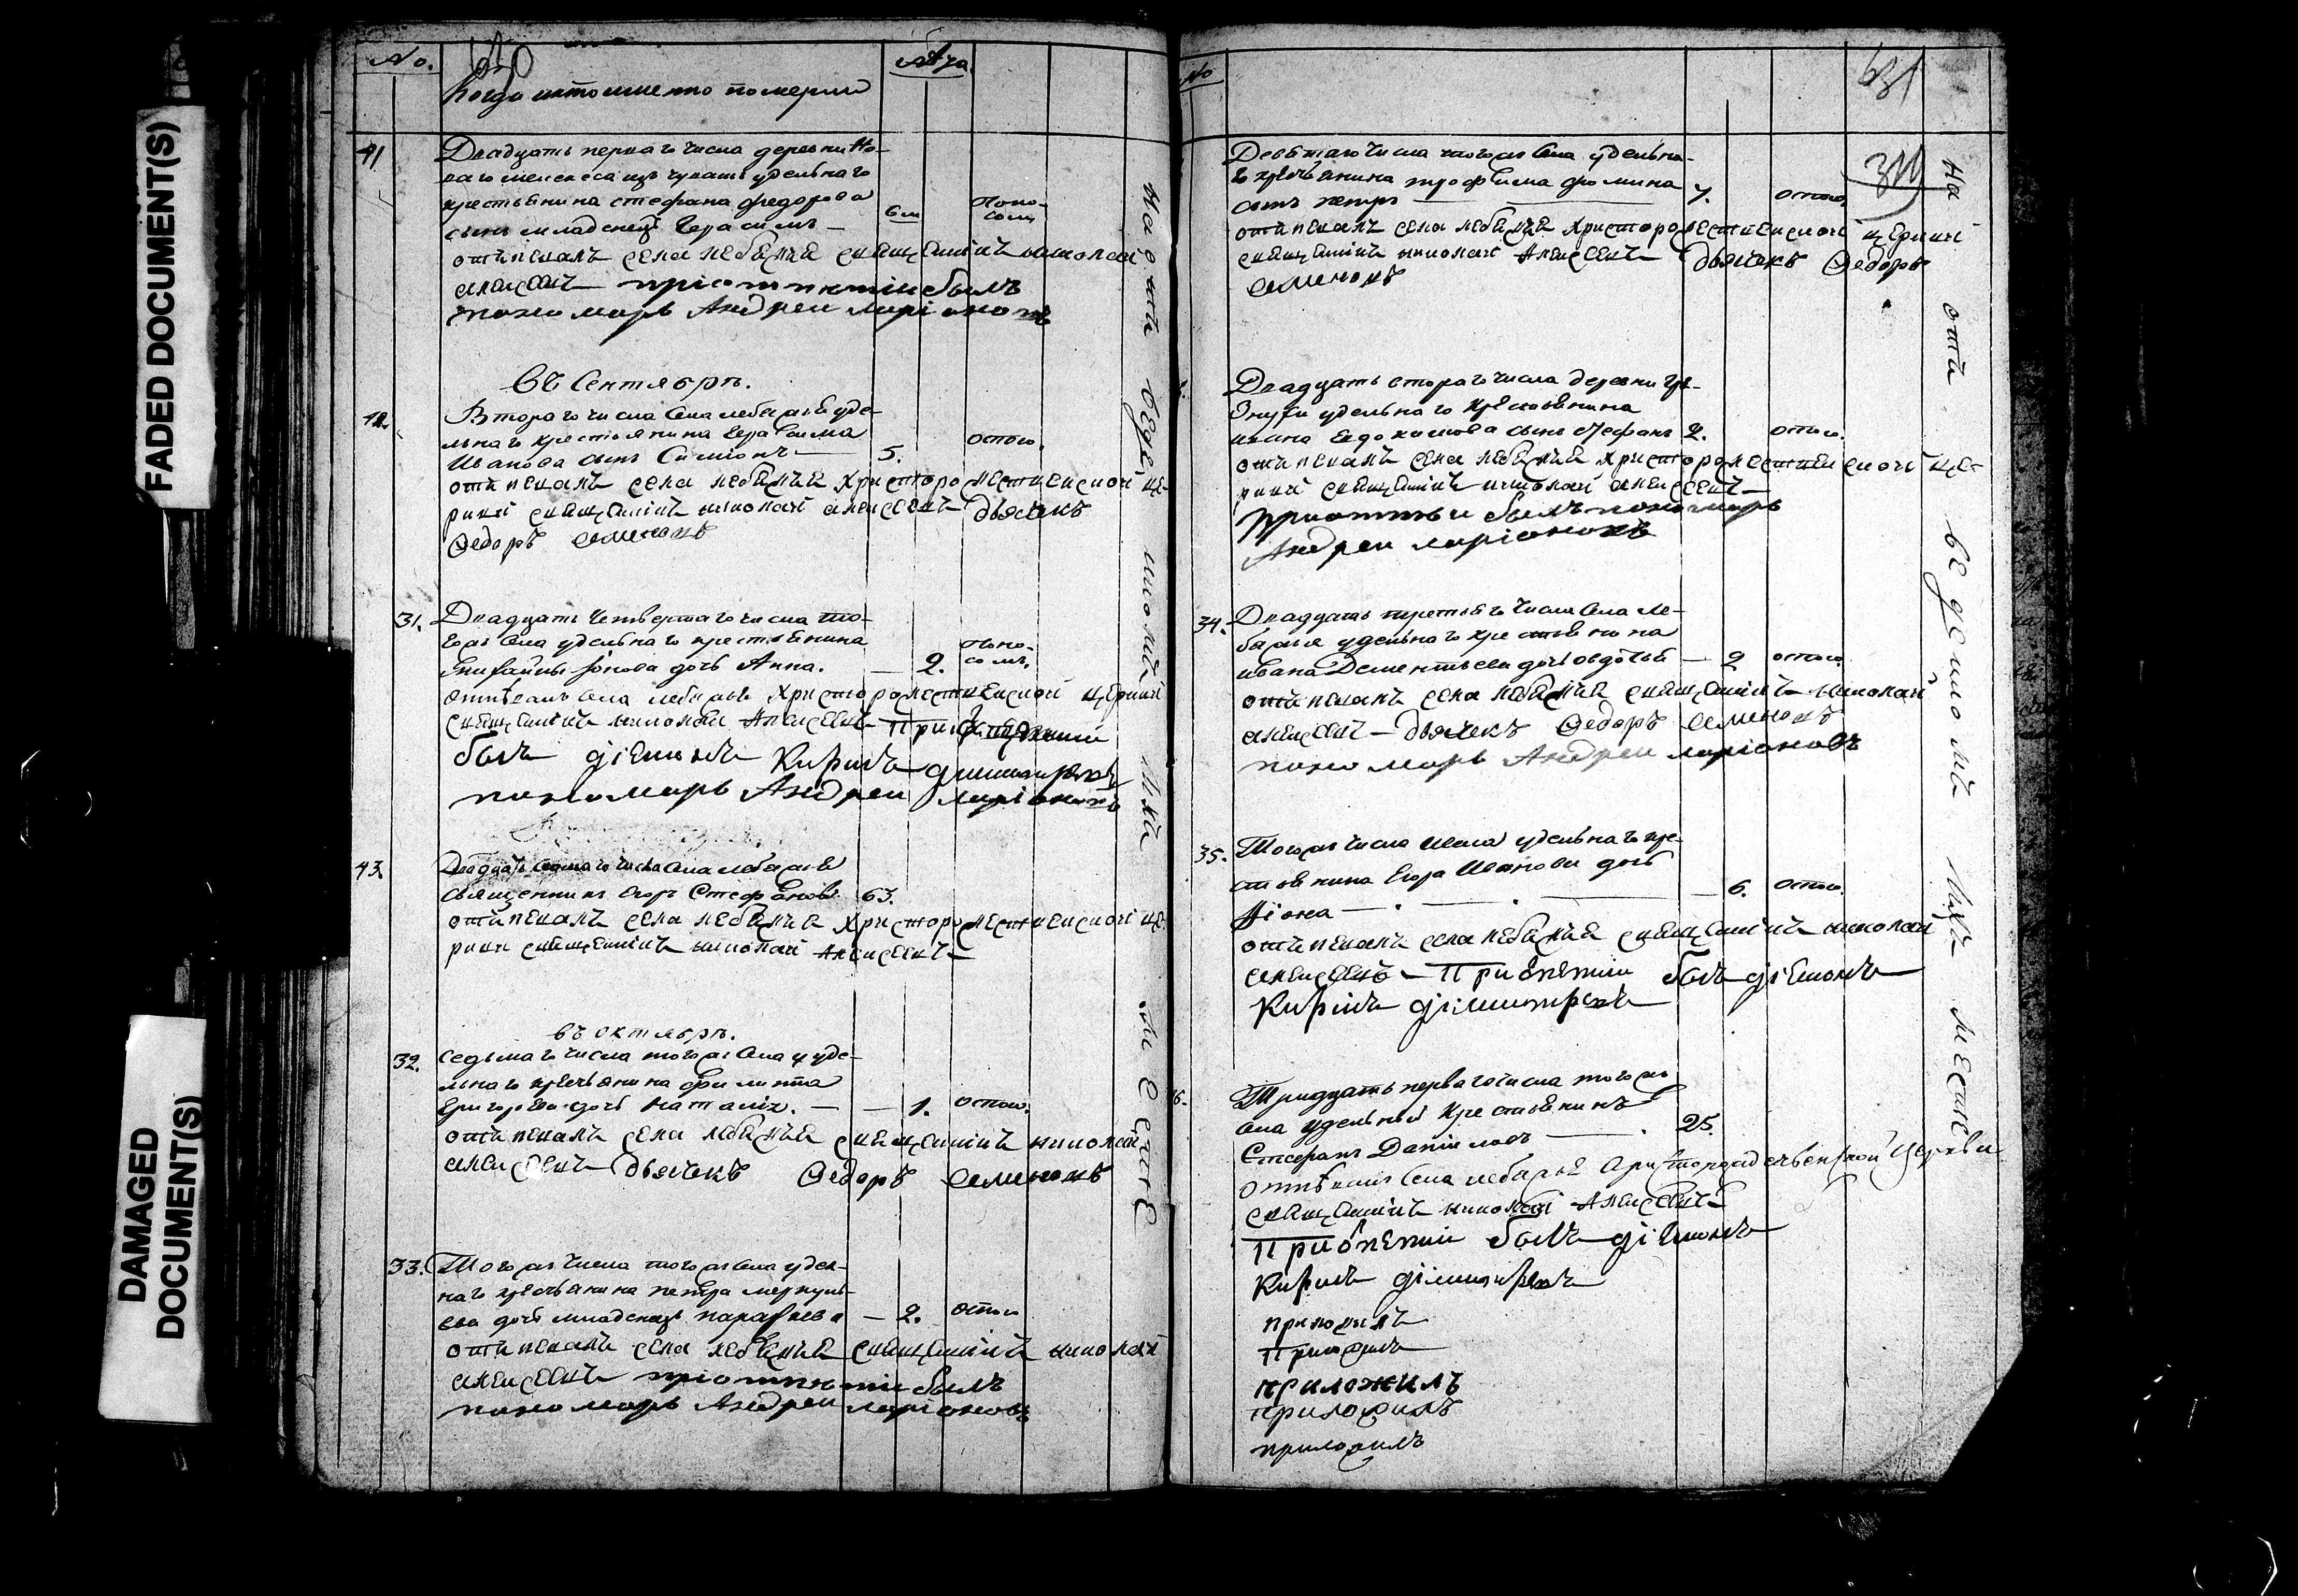 FADED DOCUMENT(S)
DAMAGED DOCUMENT(S)
No.
630
Лѣта
Когда и кто именно померли
41
Двадцать перваго числа деревни Но-
ваго изъ чувашъ удельнаго
крестьянина стефана федорова
сынъ младенецъ Герасимъ
6 м
поно-
сомъ
отпевалъ села лебяжья священникъ николай
алексеевъ при отпетіи былъ
пономарь Андреи ларіоновъ
Въ Сентябрѣ.
42.
Втораго числа села лебяжья уде-
льнаго крестьянина Герасима
Иванова сынъ Симіонъ
5.
оспою.
отпевалъ села лебяжья христорождественской це-
ркви священникъ николай алексеевъ дьячекъ
Федоръ семеновъ
31.
Двадцать четвертаго числа то-
гожъ села удельнаго крестьянина
Іонова дочь Анна.
2.
поно-
сомъ.
отпевалъ села лебяжья христорождественской церкви
священникъ николай Алексеевъ
былъ діяконъ Кирилъ димитриевъ
пономарь Андреи ларіоновъ
43.
Двадцать седмаго числа села лебяжья
священникъ Егоръ Стефановъ
63.
отпевалъ села лебяжья христорождественской це-
ркви священникъ николай Алексеевъ
въ октябрѣ.
32.
седьмаго числа тогожъ села уде-
льнаго крестьянина филипа
Григорьева дочь наталія.
1.
оспою.
отпевалъ села лебяжья священникъ николай
алексеевъ дьячекъ Федоръ семеновъ
33.
Тогожъ числа тогожъ села удел-
наго крестьянина петра меркуль-
ева дочь младенецъ парасева
2.
оспою
отпевалъ села лебяжья священникъ николай
алексеевъ при отпетіи былъ
пономарь Андреи ларіоновъ
No
631
Девятаго числа тогожъ села удельна-
го крестьянина трофима фомина
сынъ петръ
7.
оспою.
отпевалъ села лебяжья христорождественской церкви
священникъ николай Алексеевъ дьячекъ Федоръ
семеновъ
Двадцать втораго числа деревни Гря-
знухи удельнаго крестьянина
ивана евдокимова сынъ стефанъ
2.
оспою.
отпевалъ села лебяжья христорождественской це-
ркви священникъ николай алексеевъ
при отпетьи былъ пономарь
Андреи ларіоновъ
34.
Двадцать третьяго числа села ле-
бяжья удельнаго крестьянина
ивана Дементьева дочь овдотья
2
оспою.
отпевалъ села лебяжья священникъ николай
алексеевъ дьячекъ Федоръ семеновъ
пономарь Андреи ларіоновъ
35.
Тогожъ числа и села удельнаго кре-
стьянина Егора Иванова дочь
6.
оспою.
отпевалъ села лебяжья священникъ николай
алексеевъ При отпетіи былъ діяконъ
Кирилъ димитриевъ
6.
Тридцать перваго числа тогожъ
села удельный крестьянинъ
Стефанъ Даниловъ
25.
отпевалъ села лебяжья христорождественской церкви
священникъ николай Алексеевъ
При отпетіи былъ діяконъ
Кирилъ димитриевъ
приложилъ
приложилъ
приложилъ
приложилъ
приложилъ